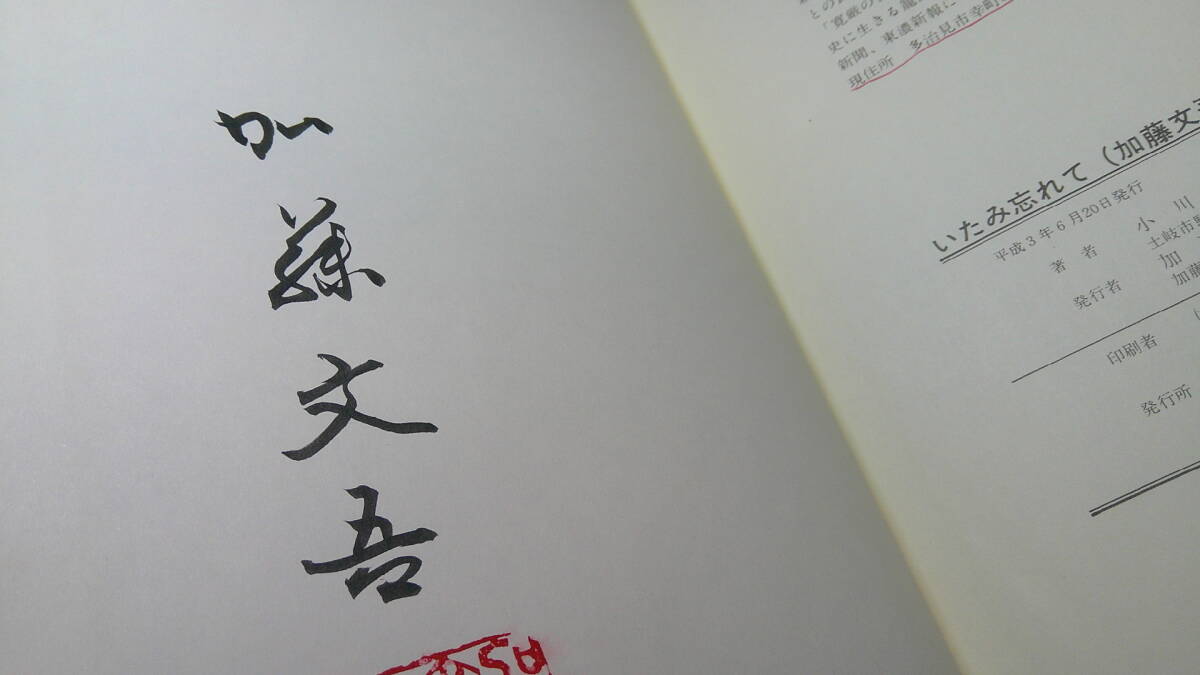 加藤文吾
との
「寛厳の
史に生きる龍
新聞、東濃新報に
現住所 多治見市幸町
いたみ忘れて（加藤文吾
平成3年6月20日発行
著者 小川
土岐市
発行者 加
加藤
印刷者
発行所